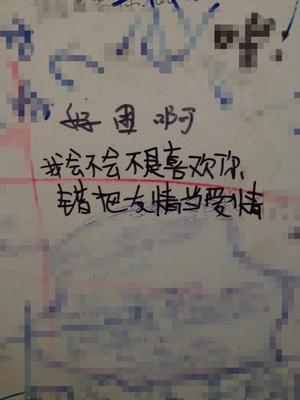 好困啊
我会不会不是喜欢你,
错把友情当爱情